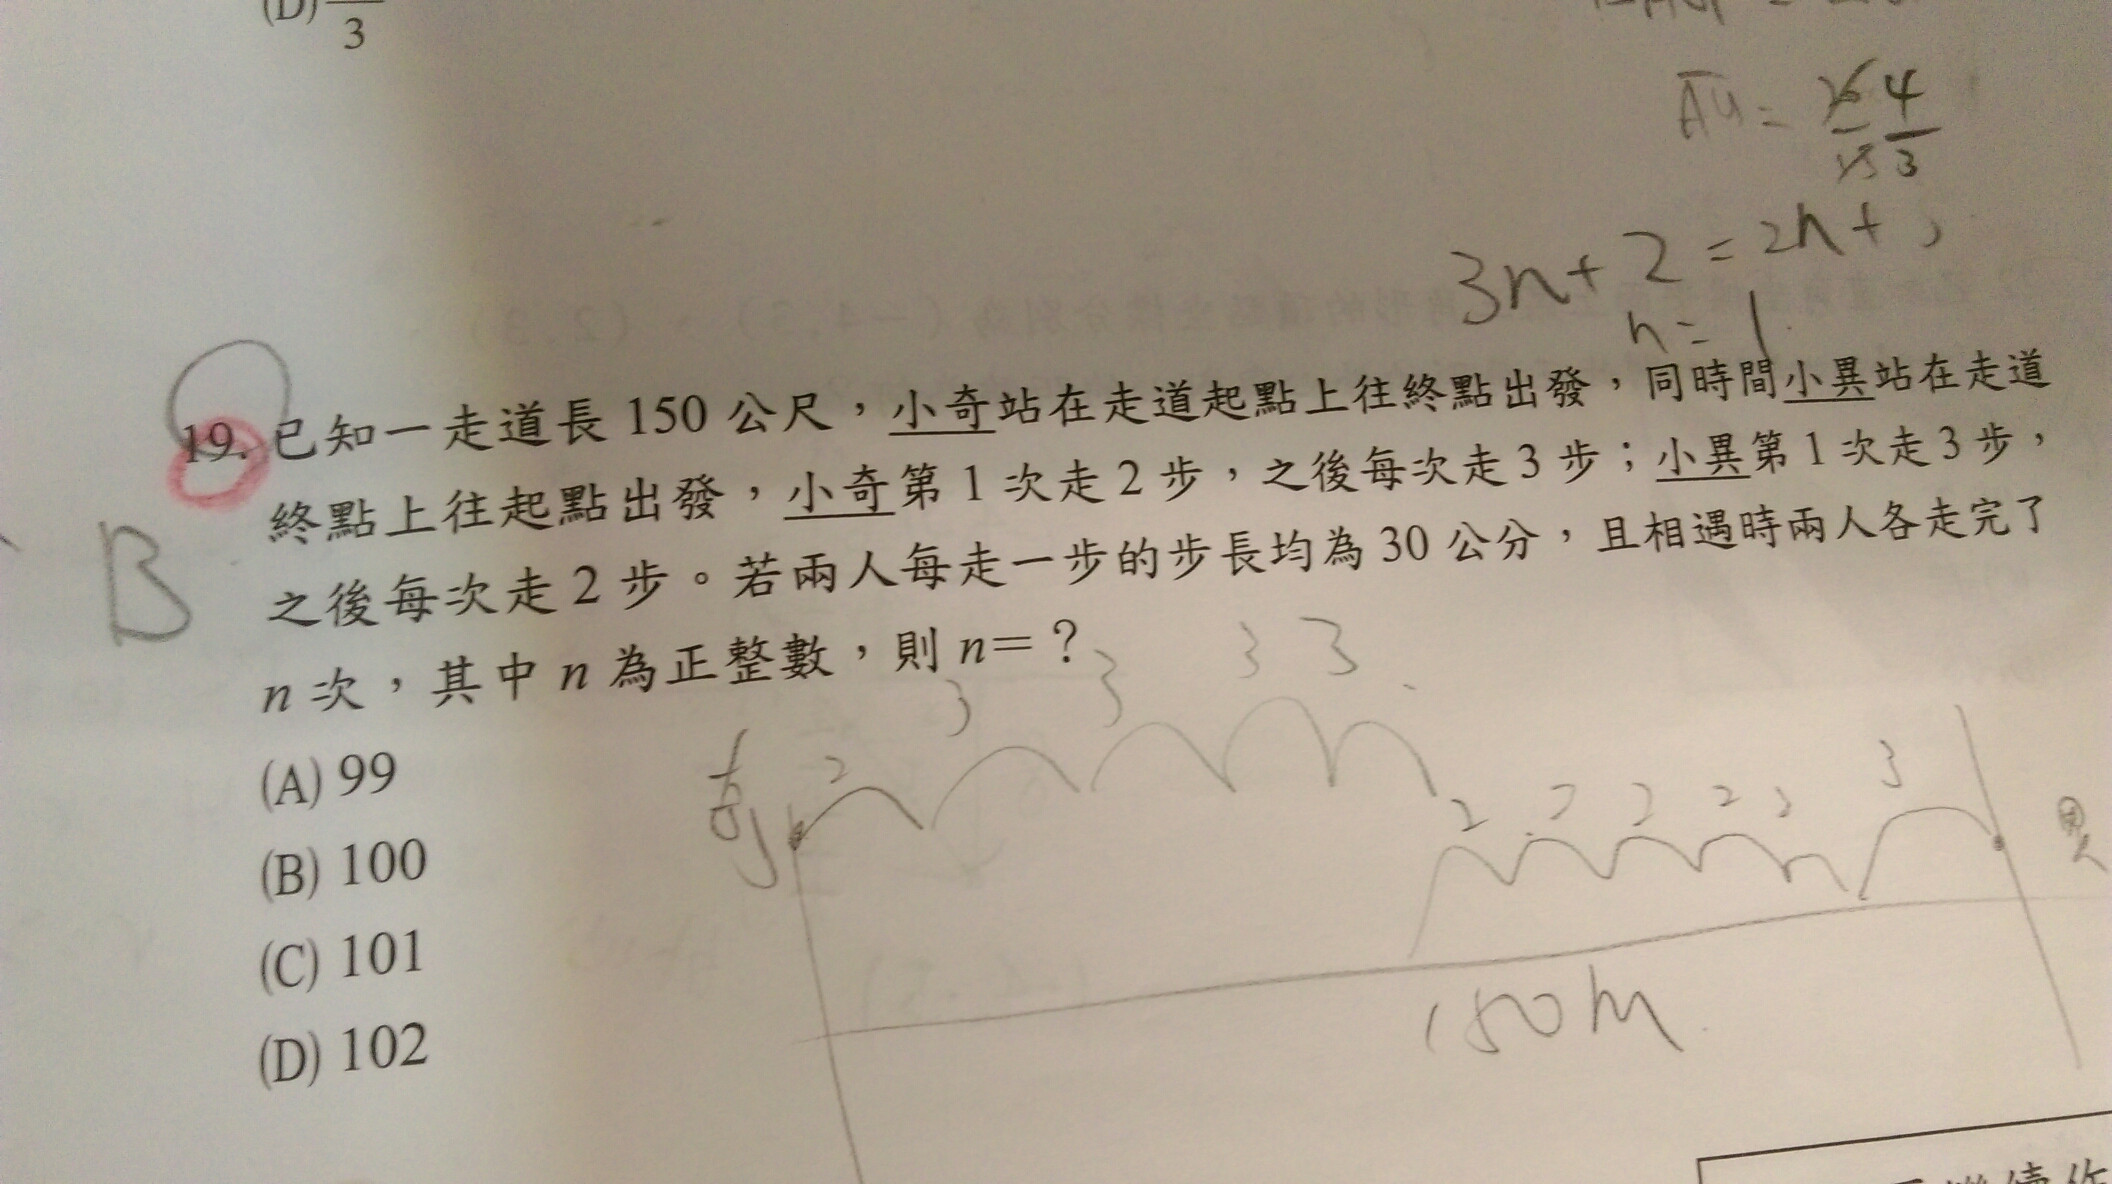 (D) 3
AH = 4/3
3n+2=2n+3
n=1
19. 已知一走道長 150 公尺，小奇站在走道起點上往終點出發，同時間小異站在走道
終點上往起點出發，小奇第 1 次走 2 步，之後每次走 3 步；小異第 1 次走 3 步，
B
之後每次走 2 步。若兩人每走一步的步長均為 30 公分，且相遇時兩人各走完了
n 次，其中 n 為正整數，則 n=？
(A) 99
(B) 100
(C) 101
(D) 102
奇 2 3 3 3 3
2 2 2 2 2 3 異
150m